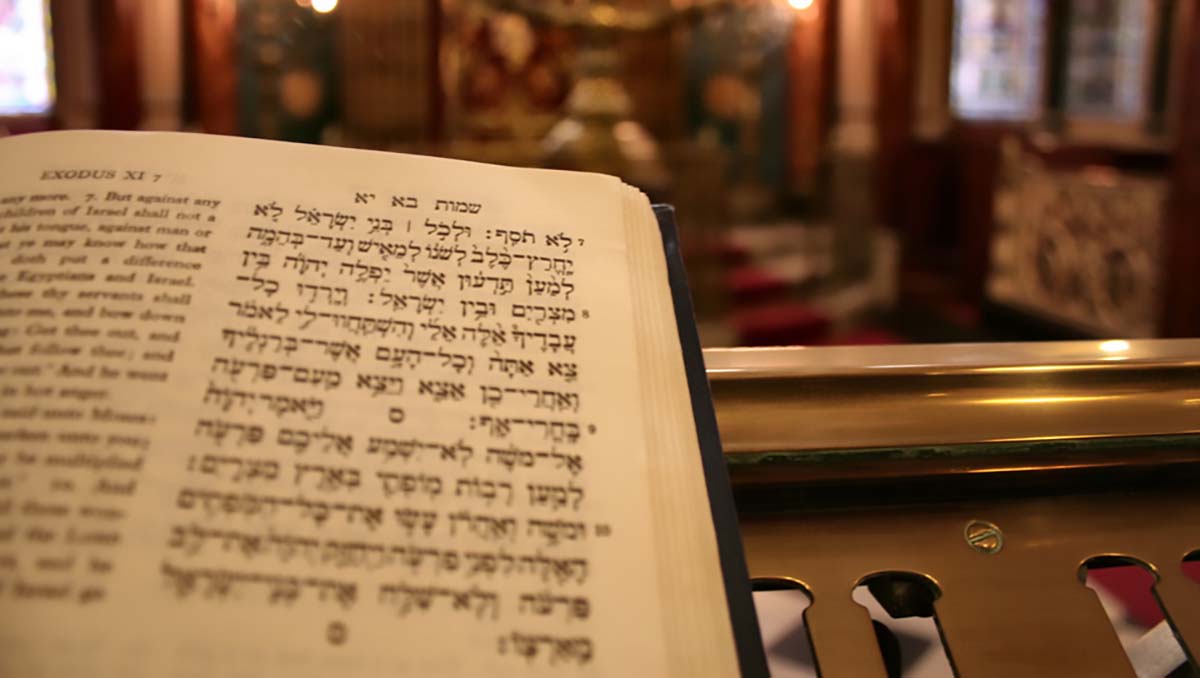 EXODUS XI 7
any more. 7. But against any
children of Israel shall not a
his tongue, against man or
ye may know how that
doth put a difference
Egyptians and Israel.
these thy servants shall
me, and bow down
Get thee out, and
that follow thee; and
out.' And he went
in hot anger.
said unto Moses:
unto you;
be multiplied
And
שמות בא יא
7 לֹא תֹסִף׃ וּלְכֹל ׀ בְּנֵי יִשְׂרָאֵל לֹא
יֶחֱרַץ־כֶּלֶב לְשֹׁנוֹ לְמֵאִישׁ וְעַד־בְּהֵמָה
לְמַעַן תֵּדְעוּן אֲשֶׁר יַפְלֶה יְהוָה בֵּין
8 מִצְרַיִם וּבֵין יִשְׂרָאֵל׃ וְיָרְדוּ כָל־
עֲבָדֶיךָ אֵלֶּה אֵלַי וְהִשְׁתַּחֲווּ־לִי לֵאמֹר
צֵא אַתָּה וְכָל־הָעָם אֲשֶׁר־בְּרַגְלֶיךָ
וְאַחֲרֵי־כֵן אֵצֵא וַיֵּצֵא מֵעִם־פַּרְעֹה
9 בָּחֳרִי־אָף׃ ס וַיֹּאמֶר יְהוָה
אֶל־מֹשֶׁה לֹא־יִשְׁמַע אֲלֵיכֶם פַּרְעֹה
לְמַעַן רְבוֹת מוֹפְתַי בְּאֶרֶץ מִצְרָיִם׃
10 וּמֹשֶׁה וְאַהֲרֹן עָשׂוּ אֶת־כָּל־הַמֹּפְתִים
הָאֵלֶּה לִפְנֵי פַרְעֹה וַיְחַזֵּק יְהוָה אֶת־לֵב
פַּרְעֹה וְלֹא־שִׁלַּח אֶת־בְּנֵי־יִשְׂרָאֵל
מֵאַרְצוֹ׃
ס